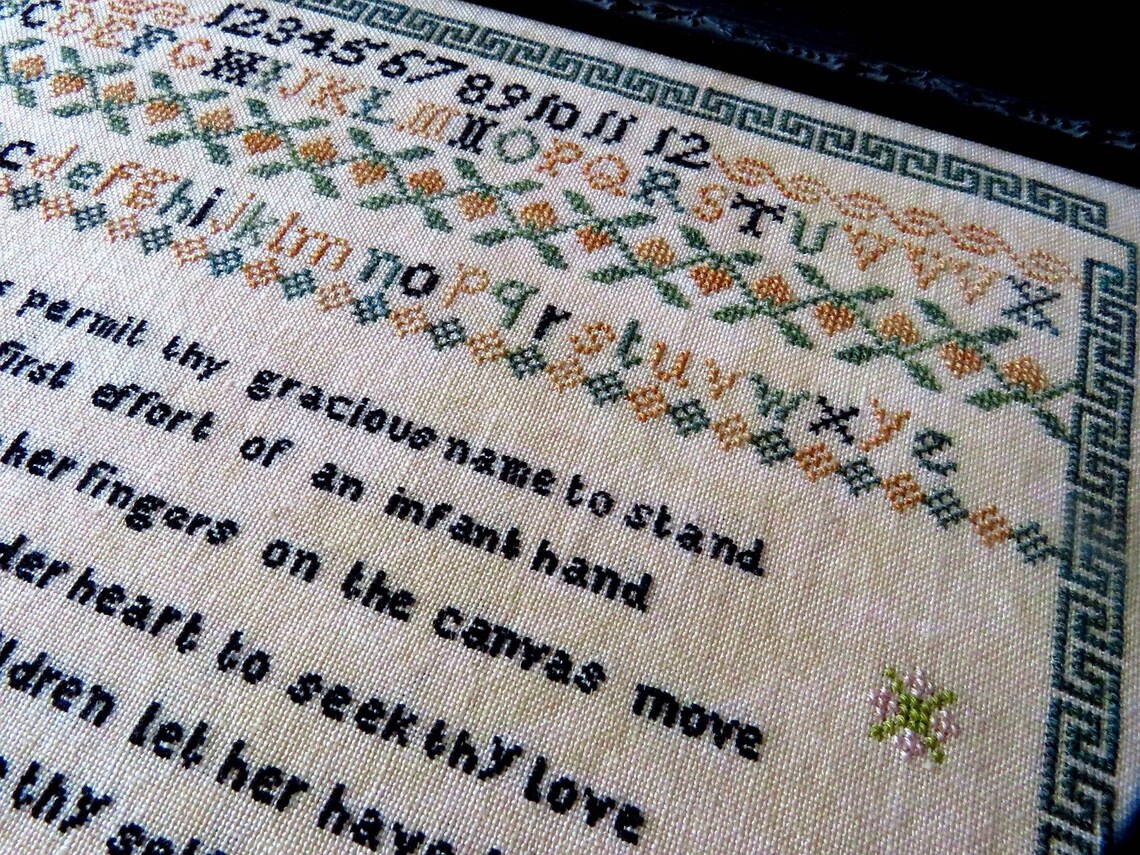 1 2 3 4 5 6 7 8 9 10 11 12
C D E F G H I J K L M N O P Q R S T U V W X
c d e f g h i j k l m n o p q r s t u v w x y
permit thy gracious name to stand
first effort of an infant hand
her fingers on the canvas move
der heart to seek thy love
ldren let her have
thy